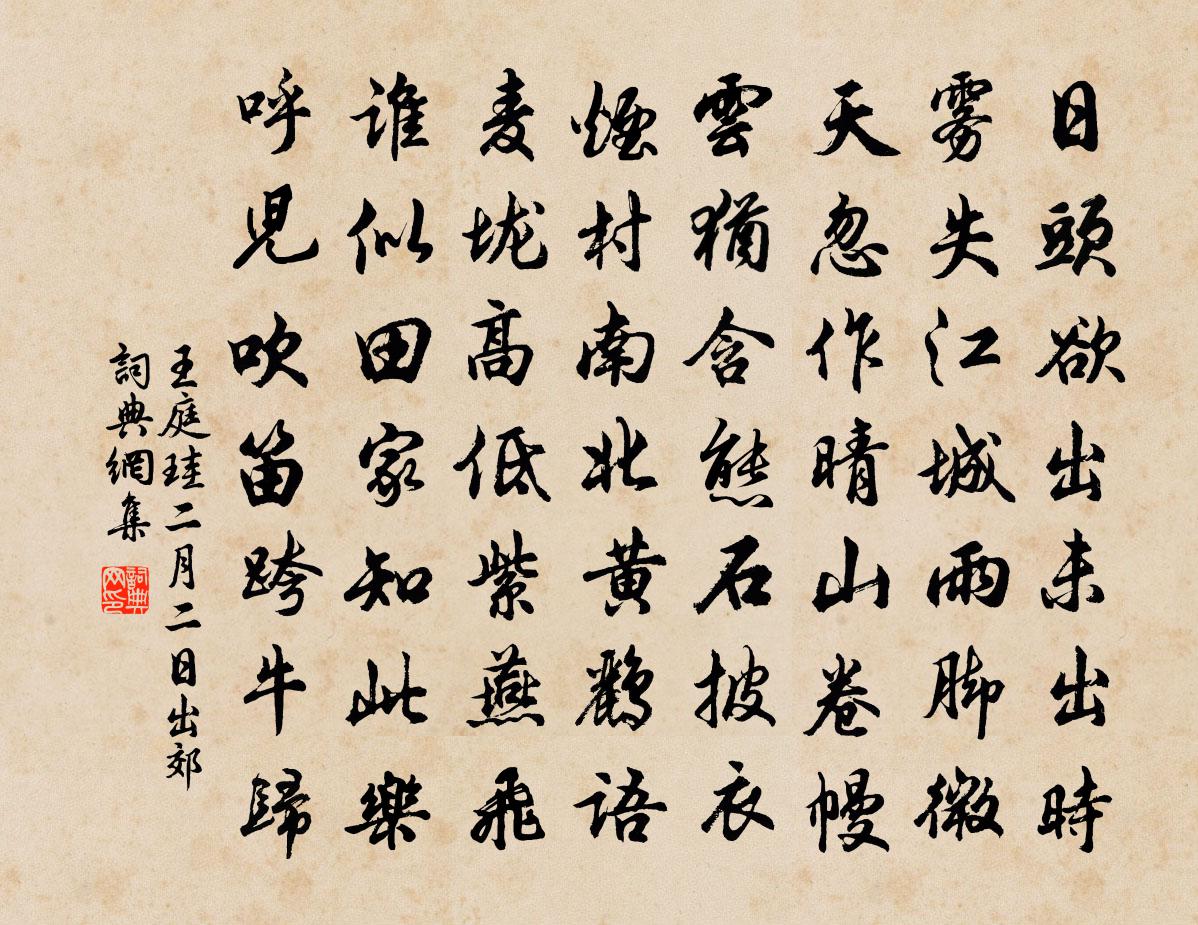 日頭欲出未出時
霧失江城雨脚微
天忽作晴山卷幔
雲猶含態石披衣
煙村南北黃鸝語
麦垅高低紫燕飛
誰似田家知此樂
呼兒吹笛跨牛歸
王庭珪二月二日出郊
詞典網集
詞典
网印